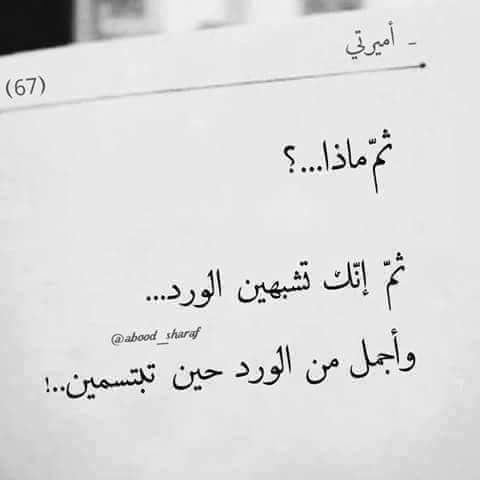 ـ أميرتي
(67)
ثمّ ماذا...؟
ثمّ إنّك تشبهين الورد...
@abood_sharaf
وأجمل من الورد حين تبتسمين..!